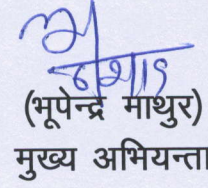 (भूपेन्द्र माथुर)
मुख्य अभियन्ता